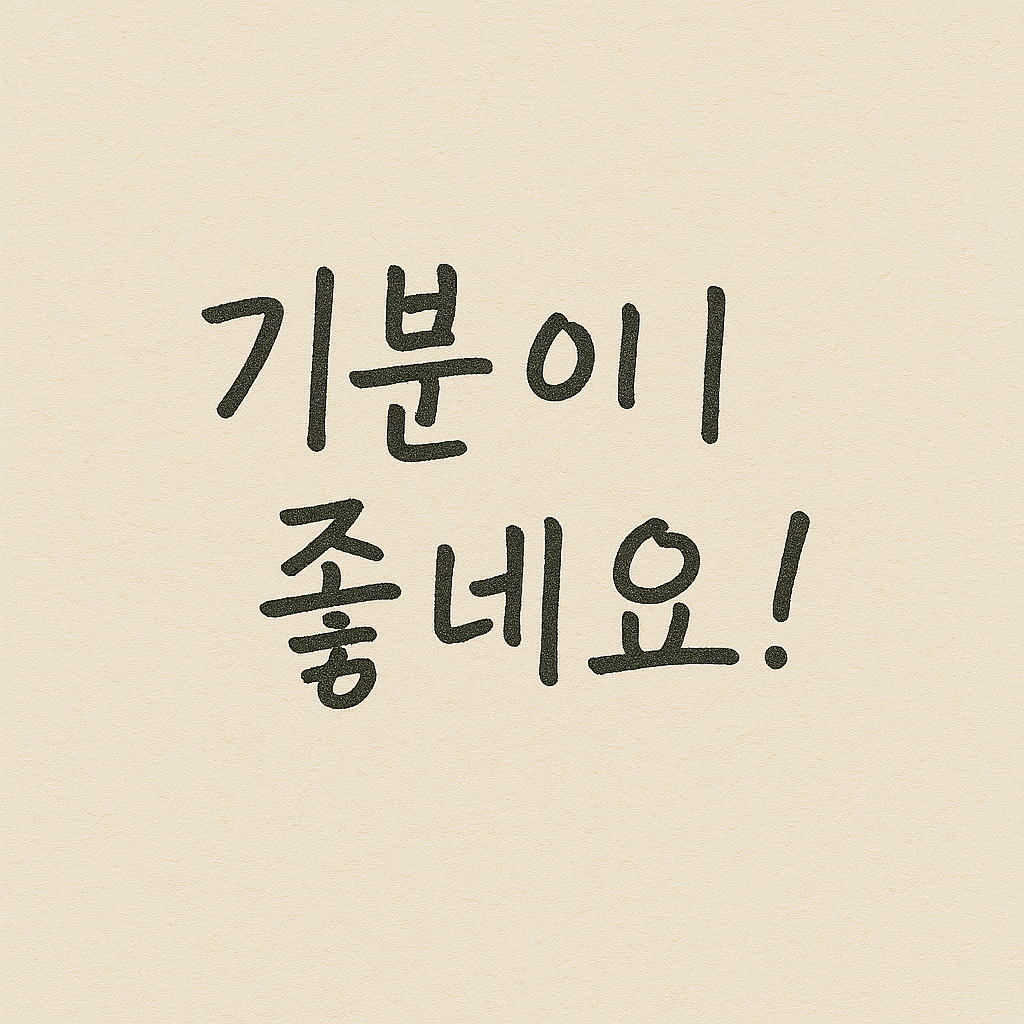 기분이ㅣ
좋네요!